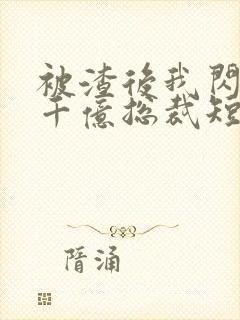 被渣後我閃
千億總裁短
隋涌